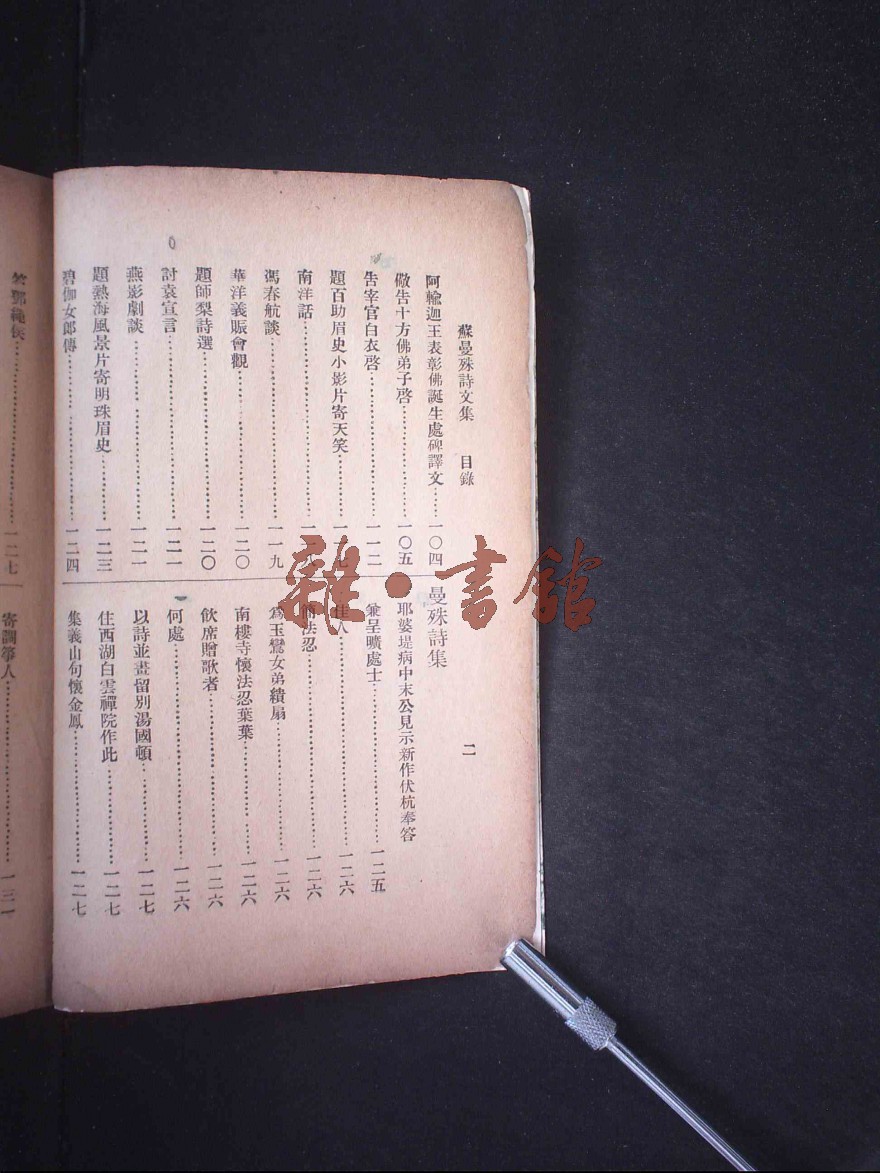 蘇曼殊詩文集　目錄　二
阿輸迦王表彰佛誕生處碑譯文……一〇四
敬告十方佛弟子啓……一〇五
告宰官白衣啓……一一二
題百助眉史小影片寄天笑……
南洋話……
馮春航談……一一九
華洋義賑會觀……一二〇
題師梨詩選……一二〇
討袁宣言……一二一
燕影劇談……一二一
題熱海風景片寄明珠眉史……一二三
碧伽女郎傳……一二四
曼殊詩集
耶婆堤病中末公見示新作伏枕奉答
兼呈曠處士……一二五
佳人……一二六
簡法忍……一二六
爲玉鸞女弟繢扇……一二六
南樓寺懷法忍葉葉……一二六
飲席贈歌者……一二六
何處……一二六
以詩並畫留別湯國頓……一二七
住西湖白雲禪院作此……一二七
集義山句懷金鳳……一二七
鄧繩侯……一二七
寄調箏人……一三一
雜·書館